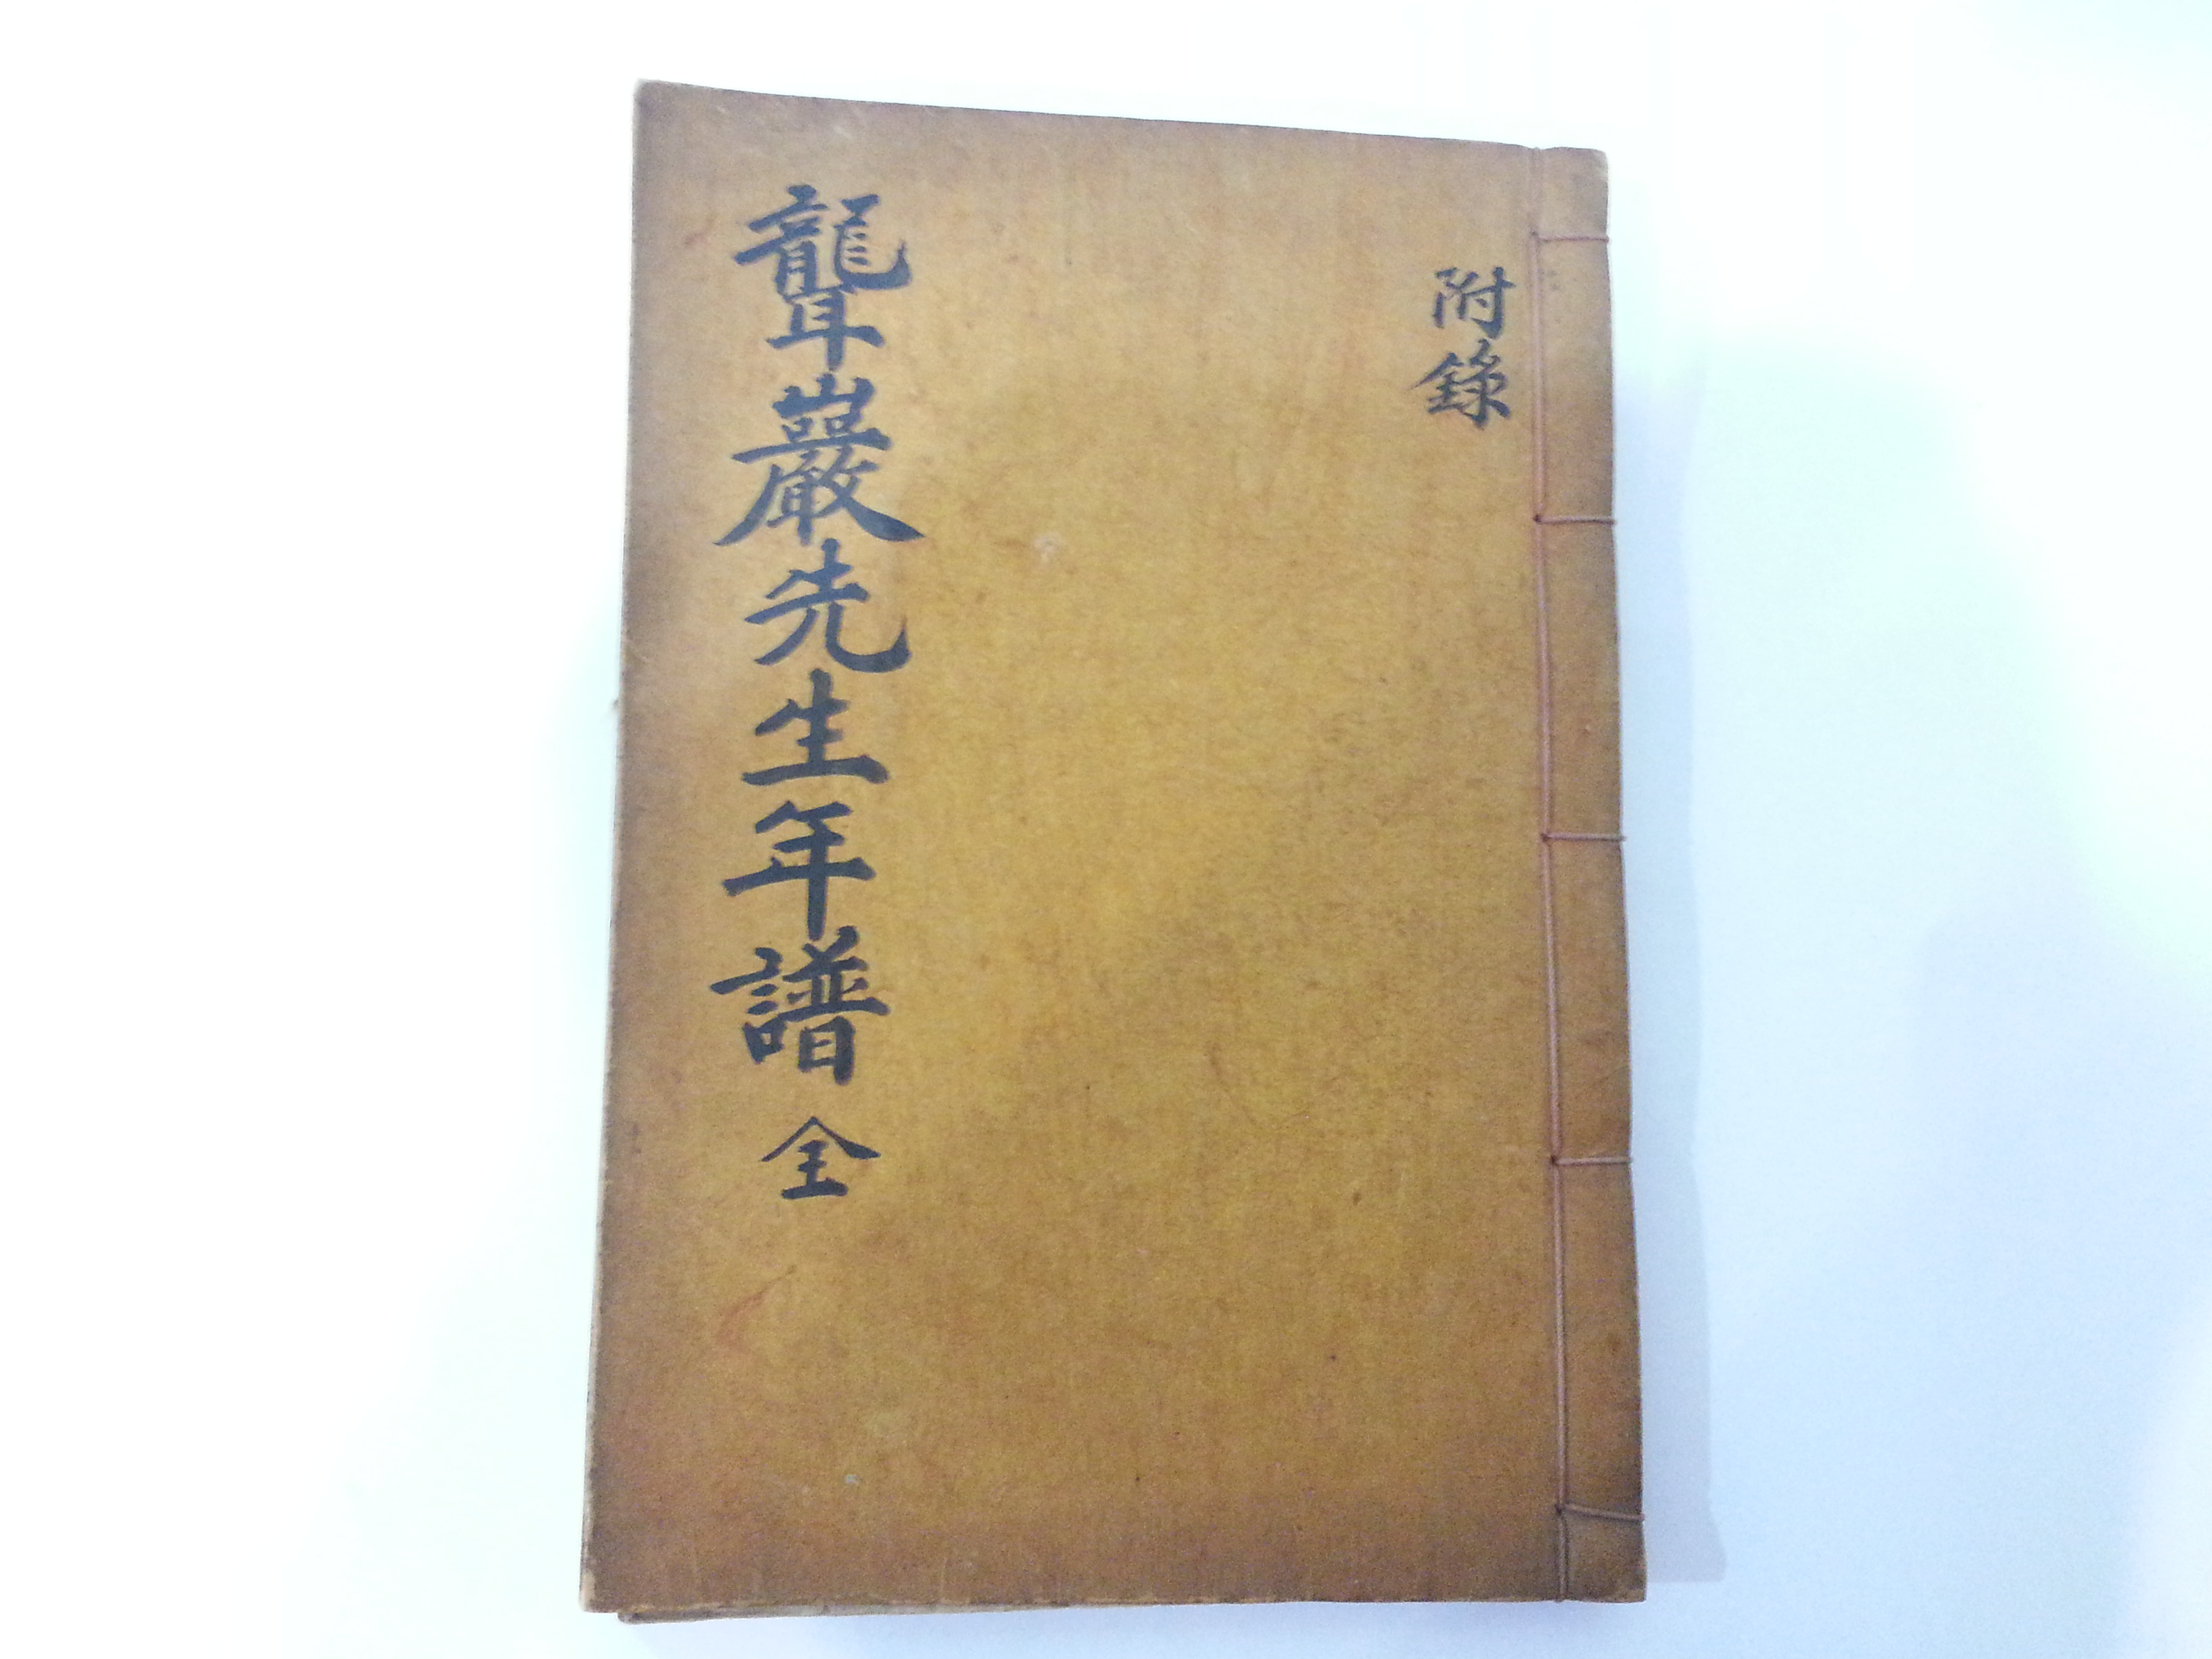 附錄
聾巖先生年譜 全